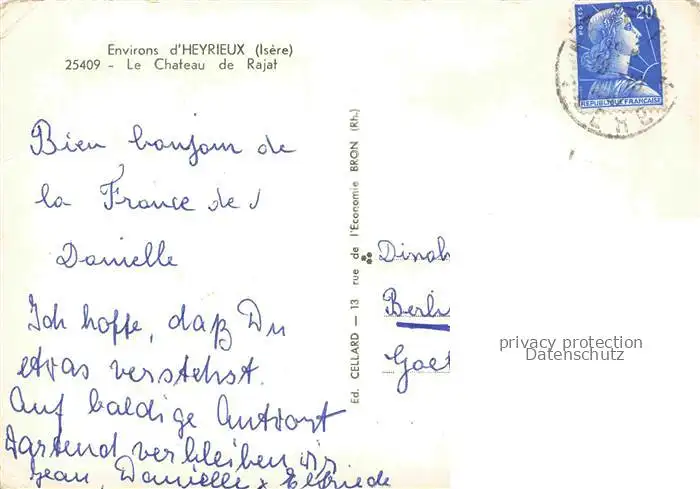 Environs d'HEYRIEUX (Isère)
25409 - Le Chateau de Rajat
Bien bonjour de
la France de
Danielle
Ich hoffe, daß Du
etvas verstehst.
Auf baldige Antvort
vartend verbleiben vir
Jean, Danielle & Elfriede
Ed. CELLARD — 13 rue de l'Economie BRON (Rh.)
POSTES
20F
REPUBLIQUE FRANÇAISE
Dinah
Berlin
Goet
privacy protection
Datenschutz